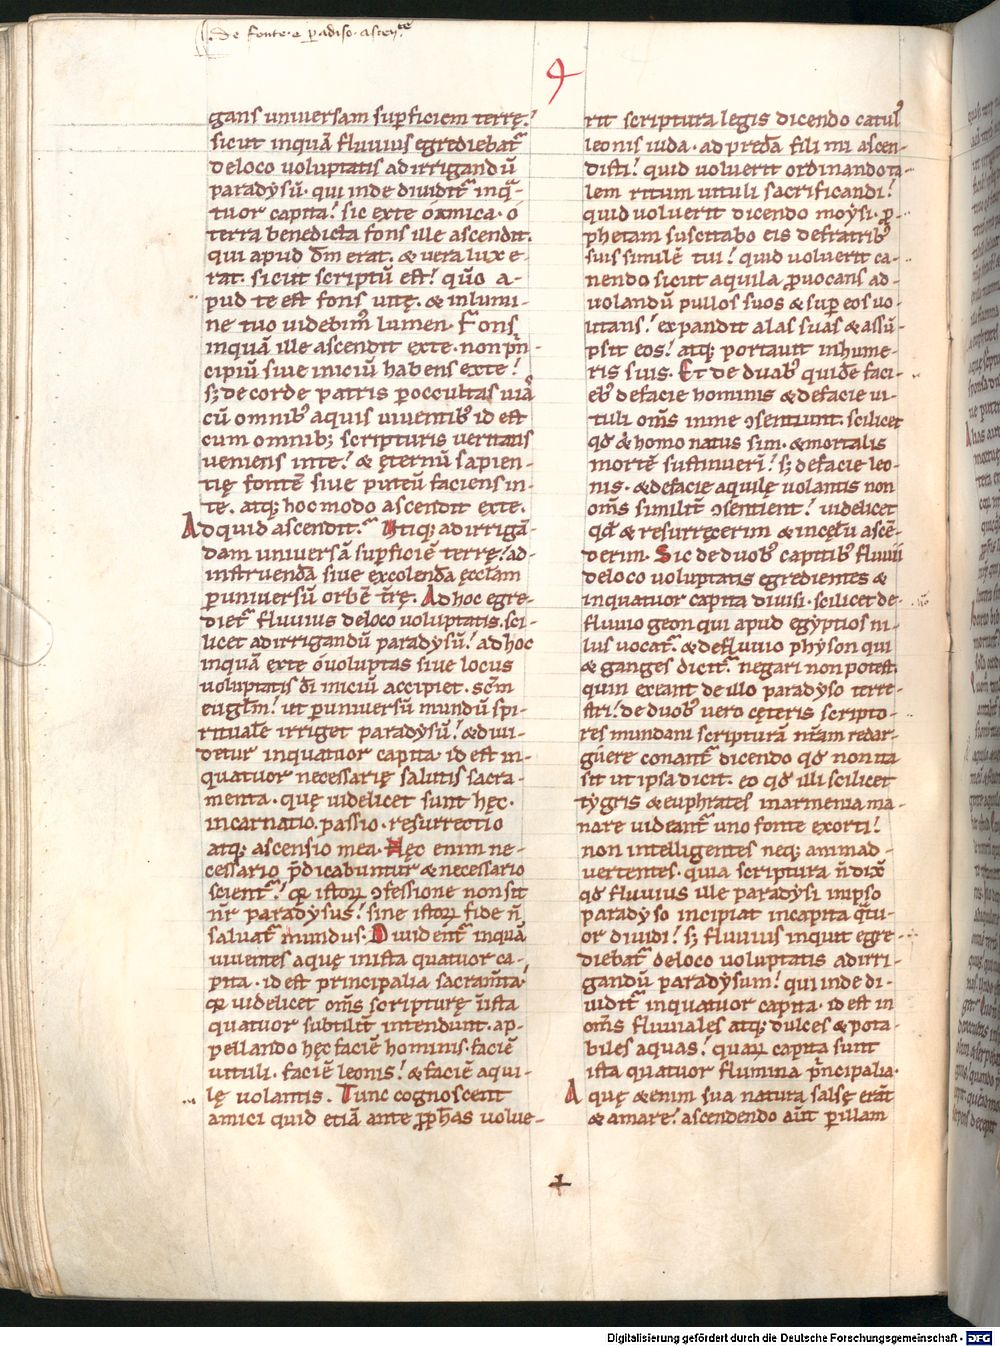 de fonte e paradiso ascen&#96;te&#96;
9
gans uniuersam supficiem terrę.
sicut inquā fluuius egrediebat᷑
deloco uoluptatis adirrigandū
paradysū. qui inde diuidit᷑ inq̄-
tuor capita! sic exte ó amica. ó
terra benedicta fons ille ascendit.
qui apud dm̄ erat. & uera lux e-
rat. sicut scriptū est! qūo a-
pud te est fons uitę. & inlumi-
ne tuo uidebim᷒ lumen. Fons
inquā ille ascendit exte. non p̄n-
cipiū siue iniciū habens exte!
s; de corde patris p occultas uiā
cū omnib᷒ aquis uiuentib᷒ id est
cum omnib; scripturis veritatis
ueniens inte! & ęternū sapien-
tię fontē siue puteū faciens in-
te. atq; hoc modo ascendit exte.
Ad quid ascendit. Utiq; ad irrigā-
dam uniuersā supficiē terrę! ad-
instruendā siue excolendā ęcclam
p uniuersū orbē t̄rę. Ad hoc egre-
diet᷑ fluuius deloco uoluptatis. sci-
licet adirrigandū paradysū! ad hoc
inquā exte ó uoluptas siue locus
uoluptatis dī iniciū accipiet. sc̄m
eugl̄m! ut p uniuersū mundū spi-
ritualē irriget paradysū! & diui-
detur inquatuor capita. id est in-
quatuor necessarię salutis sacra-
menta. quę uidelicet sunt hęc.
incarnatio. passio. resurrectio
atq; ascensio mea. Hęc enim ne-
cessario p̄dicabuntur & necessario
scient᷑! qꝛ istoꝝ ꝯfessione non sit
nr̄ paradysus! sine istoꝝ fide ñ
saluat᷑ mundus. Diuident᷑ inquā
uiuentes aquę inista quatuor ca-
pita. id est principalia sacram̄ta.
qꝛ uidelicet om̄s scripturę iīsta
quatuor subtilit̄ intendunt. ap-
pellando hęc faciē hominis. faciē
uituli. faciē leonis! & faciē aqui-
lę uolantis. Tunc cognoscent
amici quid etiā ante pp̄has uolue-
rit scriptura legis dicendo catul᷒
leonis iuda. ad predā fili mi ascen-
disti! quid uoluerit ordinando ta-
lem ritum uituli sacrificandi!
quid uoluerit dicendo moysi. p̄-
phetam suscitabo eis defratrib᷒
suis similē tui! quid uoluerit ca-
nendo sicut aquila puocans ad-
uolandū pullos suos & sup eos uo-
litans! expandit alas suas & assū-
psit eos! atq; portauit inhume-
ris suis. Et de duab᷒ quidē faci-
eb᷒ de facie hominis & de facie ui-
tuli om̄s inme ꝯsentiunt. scilicet
qđ & homo natus sim. & mortalis
mortē sustinueri! s; de facie leo-
nis. & de facie aquilę uolantis non
om̄s similit̄ ꝯsentient! uidelicet
qđ & resurręxerim & incęlū ascē-
derim. Sic de duob᷒ capitib᷒ fluuii
deloco uoluptatis egredientes &
inquatuor capita diuisi. scilicet de-
fluuio geon qui apud egyptios ni-
lus uocat᷑. & defluuio physon qui
& ganges dicit᷑. negari non potest.
quin exeant de illo paradyso terre-
stri! de duob᷒ uero cęteris scripto-
res mundani scripturā nr̄am redar-
guere conant᷑ dicendo qđ non ita
sit ut ipsa dicit. eo qđ illi scilicet
tygris & euphrates inarmenia ma-
nare uideant᷑ uno fonte exorti!
non intelligentes neq; animad-
uertentes. quia scriptura ñ dix̄
qđ fluuius ille paradysi inipso
paradyso incipiat incapita q̄tu-
or diuidi! s; fluuius inquit egre-
diebat᷑ deloco uoluptatis adirri-
gandū paradysum! qui inde di-
uidit᷑ inquatuor capita. id est in
om̄s fluuiales atq; dulces & pota-
biles aquas! quaꝝ capita sunt
ista quatuor flumina p̄ncipalia.
Aquę & enim sua natura salsę erāt
& amare! ascendendo aūt p illam
Digitalisierung gefördert durch die Deutsche Forschungsgemeinschaft - DFG